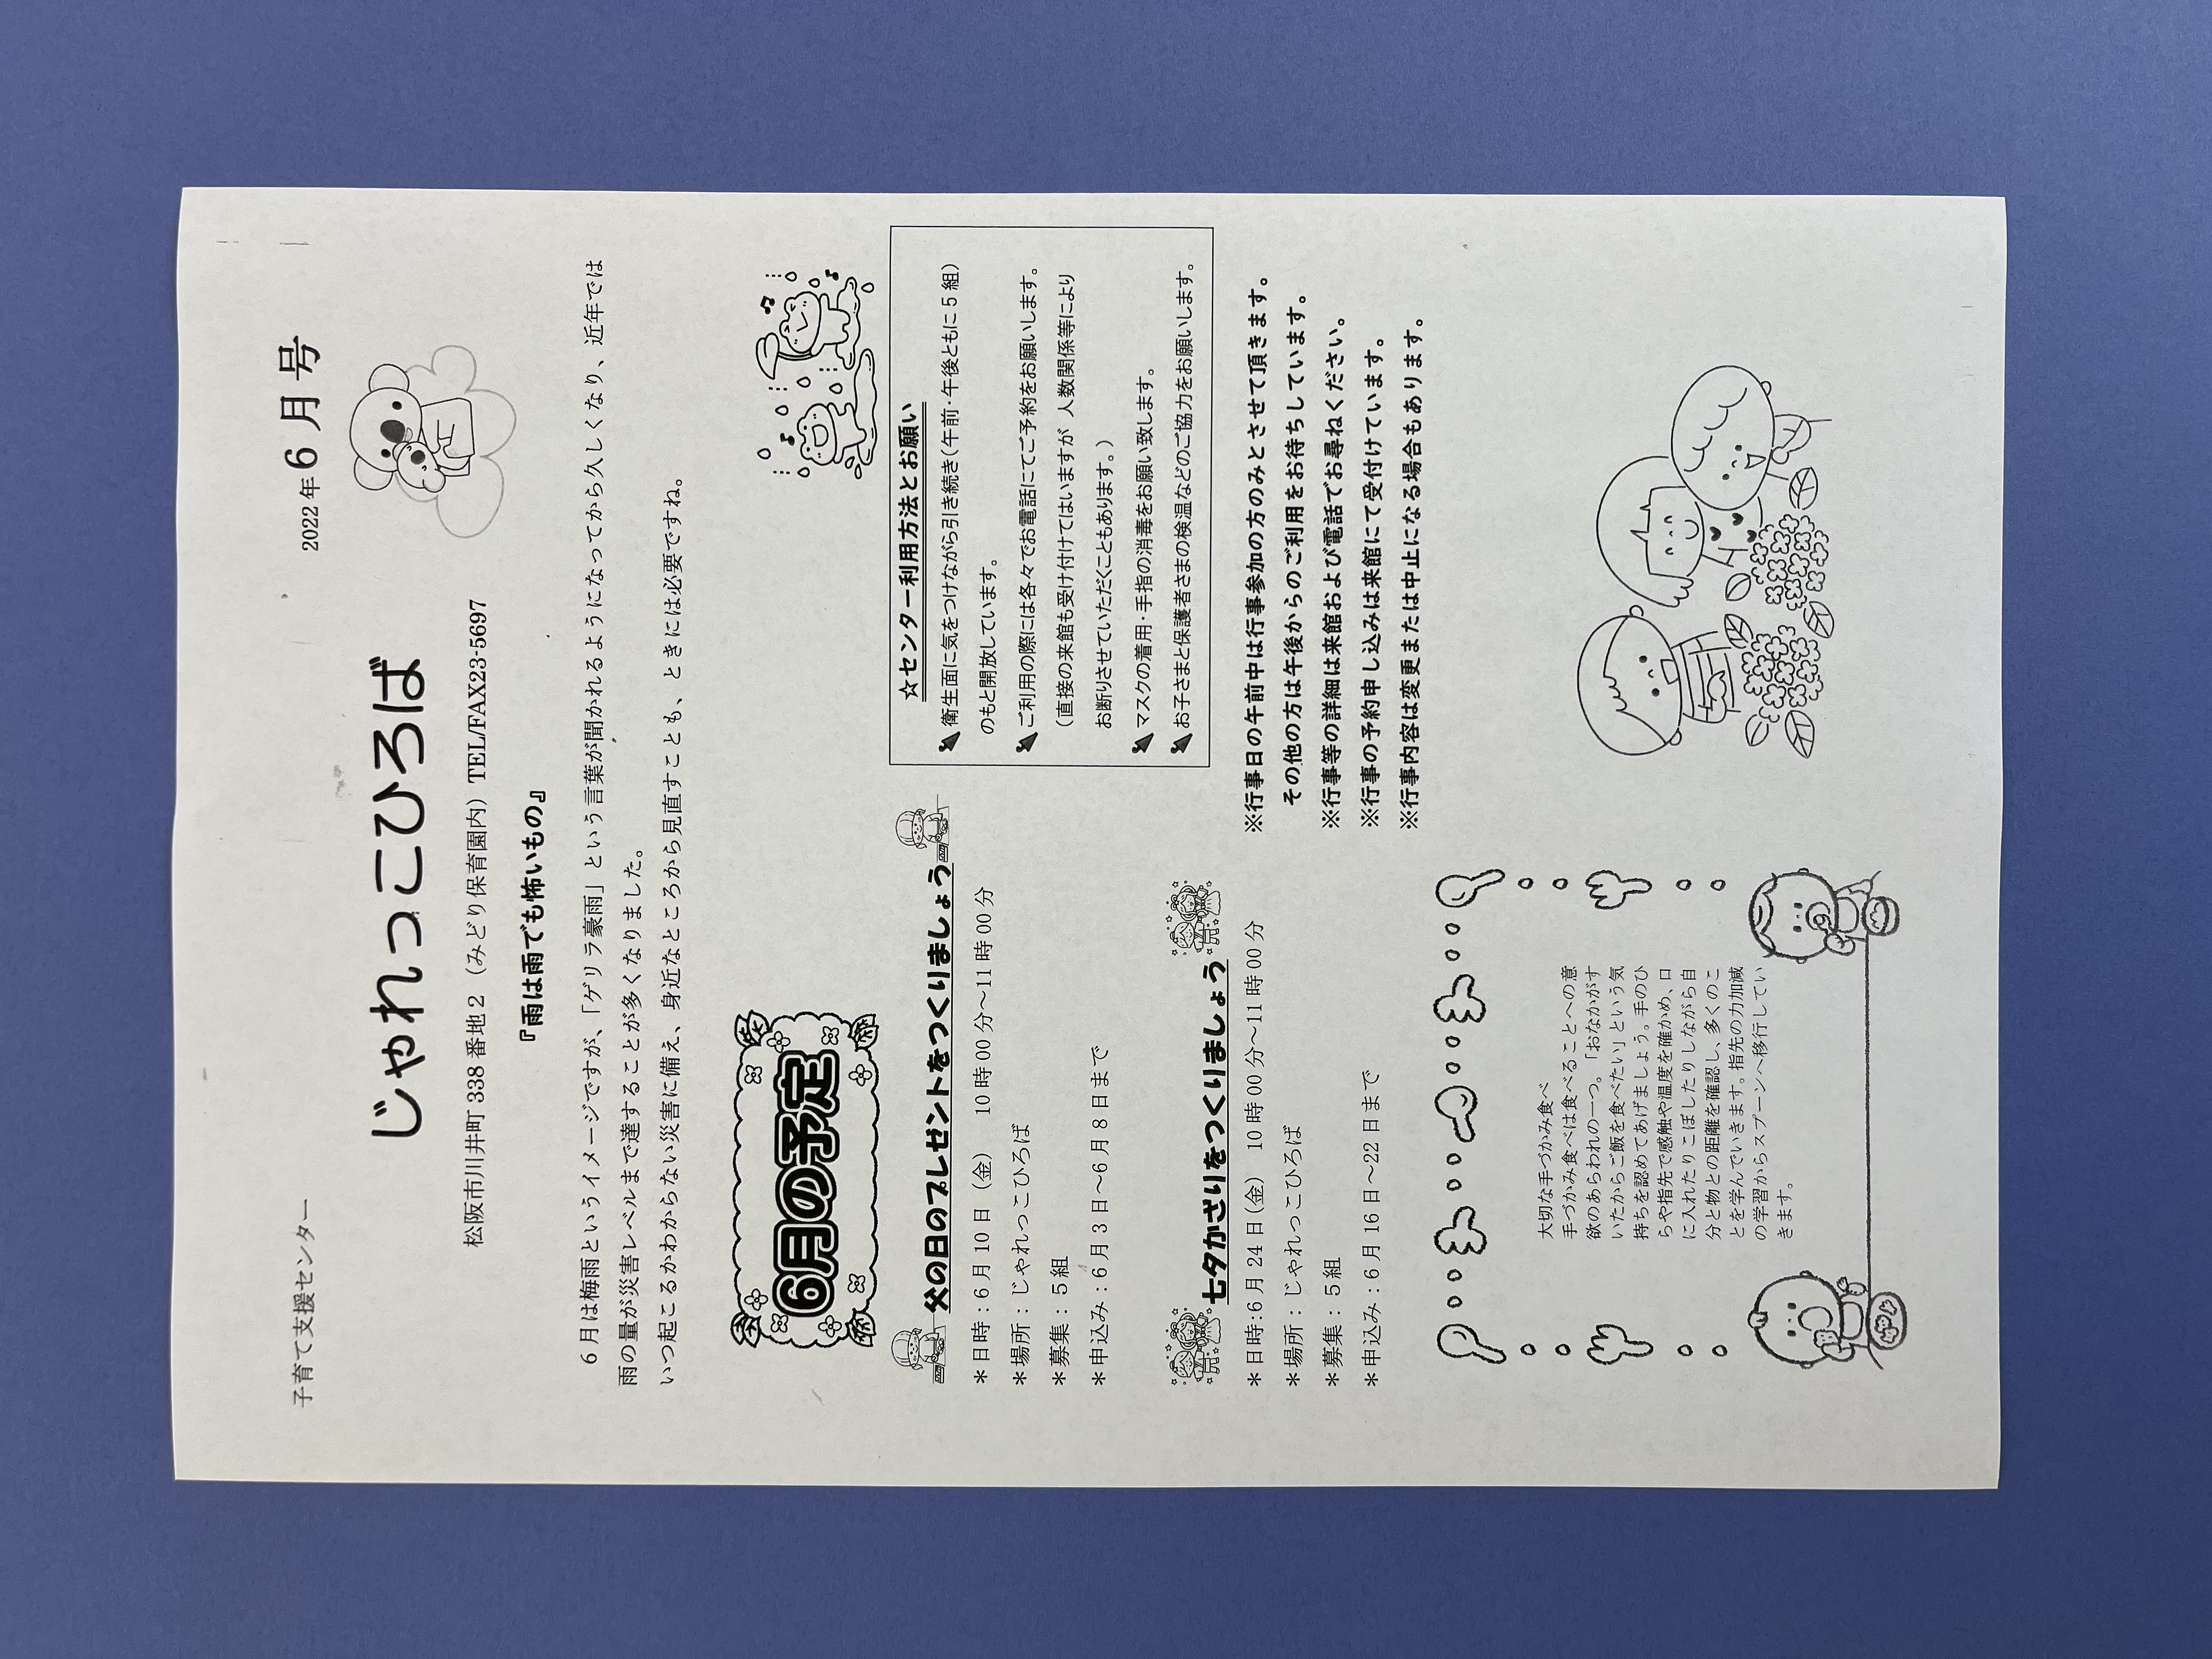 子育て支援センター
2022年6月号
じゃれっこひろば
松阪市川井町338番地2（みどり保育園内）TEL/FAX23-5697
『雨は雨でも怖いもの』
6月は梅雨というイメージですが、「ゲリラ豪雨」という言葉が聞かれるようになってから久しくなり、近年では
雨の量が災害レベルまで達することが多くなりました。
いつ起こるかわからない災害に備え、身近なところから見直すことも、ときには必要ですね。
6月の予定
父の日のプレゼントをつくりましょう
＊日時：6月10日（金）　10時00分～11時00分
＊場所：じゃれっこひろば
＊募集：5組
＊申込み：6月3日～6月8日まで
七夕かざりをつくりましょう
＊日時：6月24日（金）　10時00分～11時00分
＊場所：じゃれっこひろば
＊募集：5組
＊申込み：6月16日～22日まで
☆センター利用方法とお願い
衛生面に気をつけながら引き続き（午前・午後ともに5組）
のもと開放しています。
ご利用の際には各々でお電話にてご予約をお願いします。
（直接の来館も受け付けてはいますが 人数関係等により
お断りさせていただくこともあります。）
マスクの着用・手指の消毒をお願い致します。
お子さまと保護者さまの検温などのご協力をお願いします。
※行事日の午前中は行事参加の方のみとさせて頂きます。
その他の方は午後からのご利用をお待ちしています。
※行事等の詳細は来館および電話でお尋ねください。
※行事の予約申し込みは来館にて受付けています。
※行事内容は変更または中止になる場合もあります。
大切な手づかみ食べ
手づかみ食べは食べることへの意
欲のあらわれの一つ。「おなかがす
いたからご飯を食べたい」という気
持ちを認めてあげましょう。手のひ
らや指先で感触や温度を確かめ、口
に入れたりこぼしたりしながら自
分と物との距離を確認し、多くのこ
とを学んでいきます。指先の力加減
の学習からスプーンへ移行してい
きます。